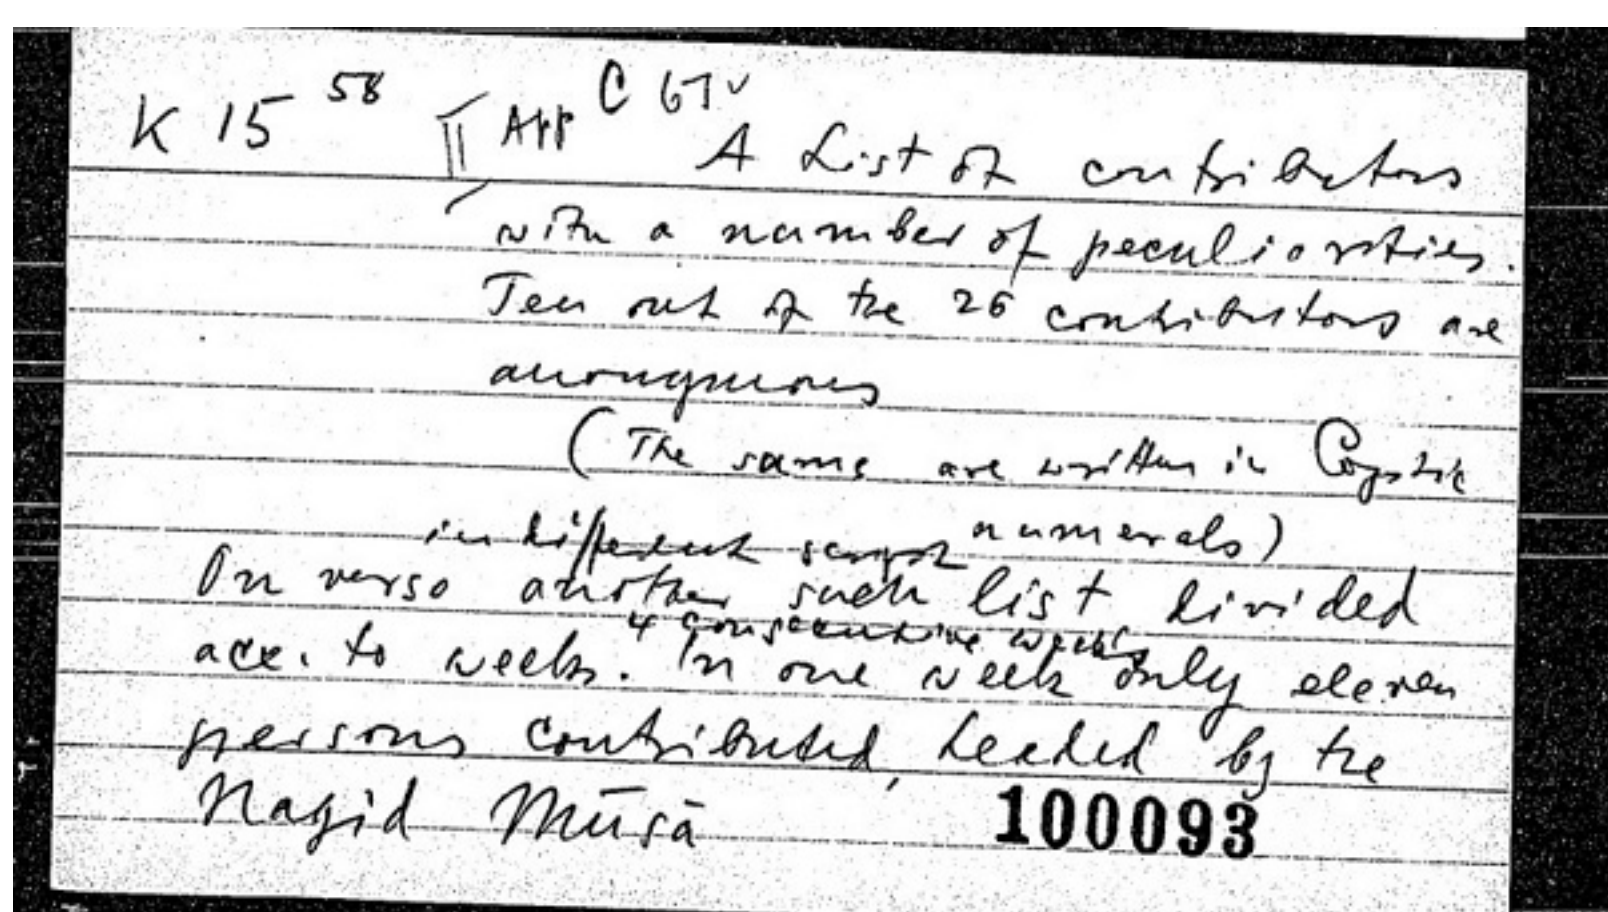 K 15 58 II App C 67v
A List of contributors
with a number of peculiarities.
Ten out of the 26 contributors are
anonymous
(The same are written in Coptic
numerals)
in different script
On verso another such list divided
4 consecutive weeks
acc. to weeks. In one week only eleven
persons contributed, headed by the
Nagid Mūsā
100093